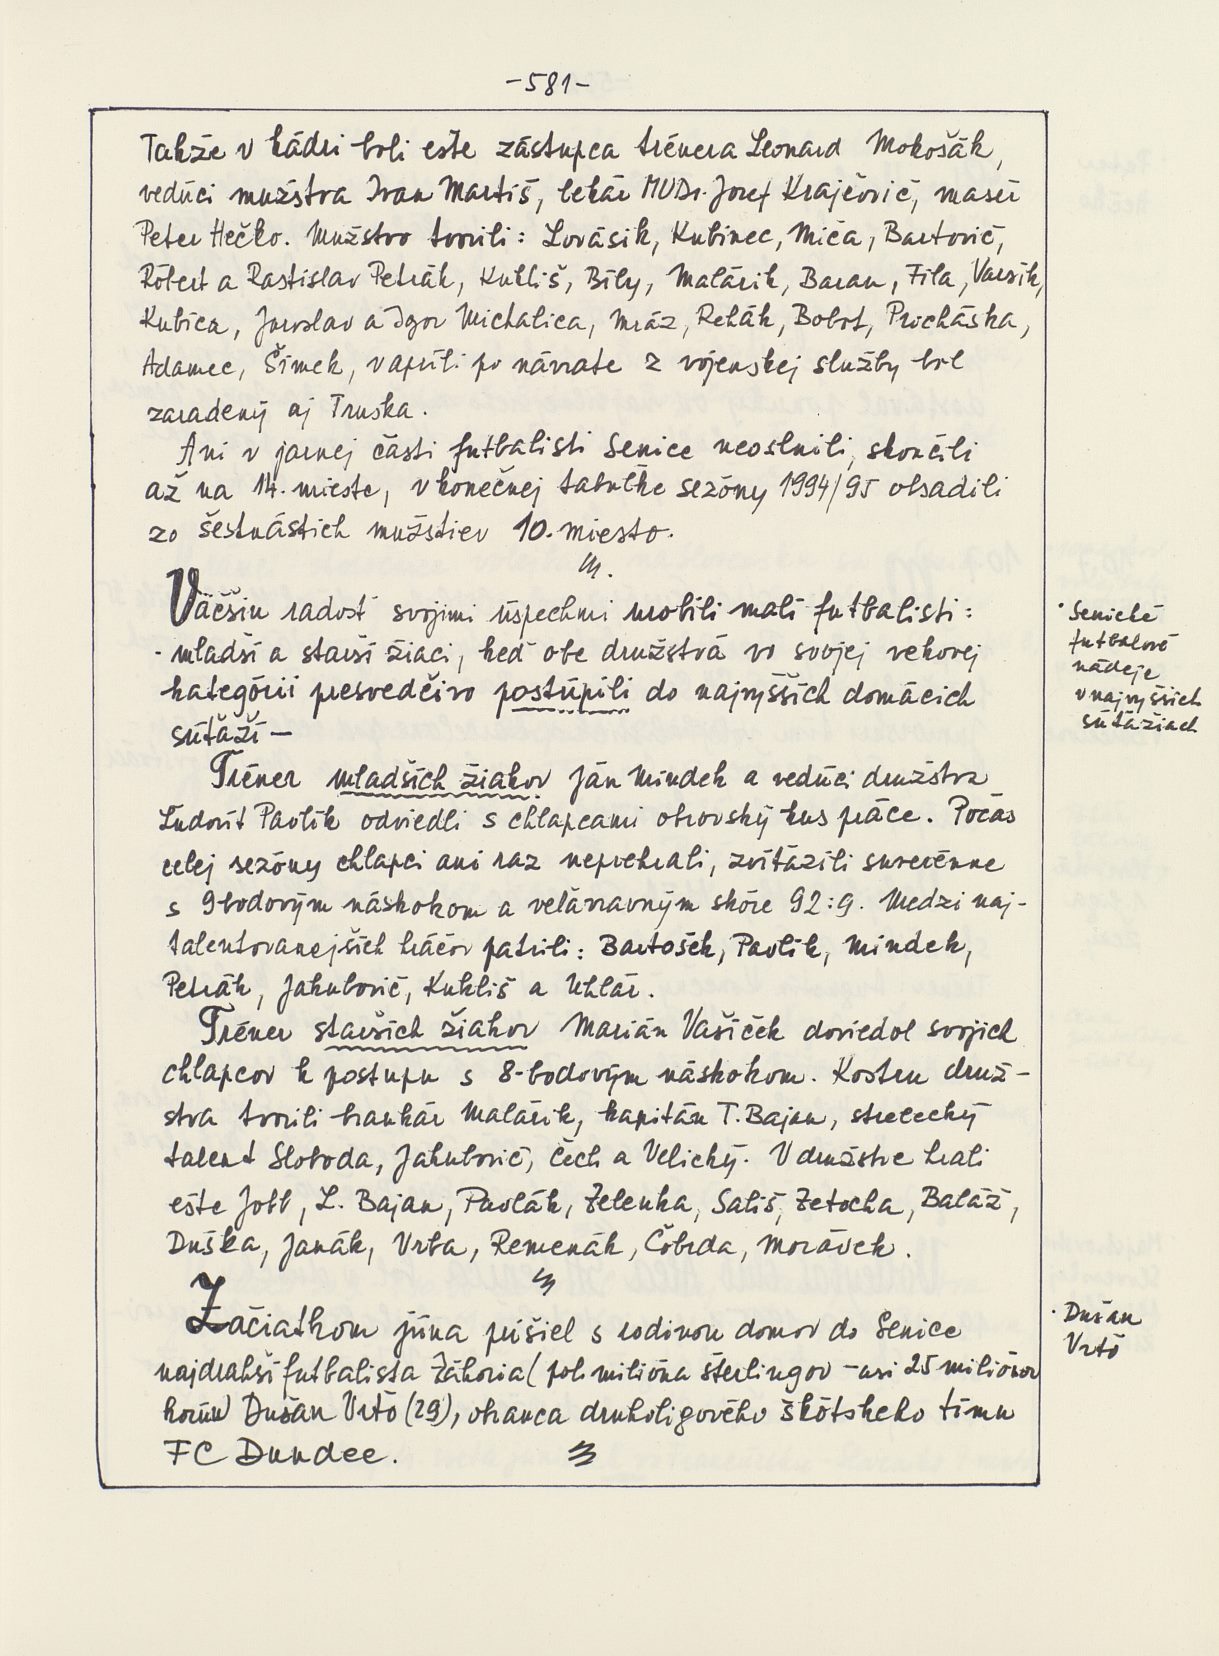 -581-
Takže v kádri boli ešte zástupca trénera Leonard Mokošák,
vedúci mužstva Ivan Martiš, lekár MUDr. Jozef Krajčovič, masér
Peter Hečko. Mužstvo tvorili: Lovásik, Kubinec, Mića, Bartovič,
Róbert a Rastislav Petrák, Kukliš, Bíly, Malárik, Baran, Fila, Varsik,
Kubica, Jaroslav a Igor Michalica, Mráz, Rehák, Bobot, Procháska,
Adamec, Šimek, v apríli po návrate z vojenskej služby bol
zaradený aj Truska.
Ani v jarnej časti futbalisti Senice neoslnili, skončili
až na 14. mieste, v konečnej tabuľke sezóny 1994/95 obsadili
zo šestnástich mužstiev 10. miesto.
Väčšiu radosť svojimi úspechmi urobili malí futbalisti:
- mladší a starší žiaci, keď obe družstvá vo svojej vekovej
kategórii presvedčivo postúpili do najvyšších domácich
súťaží -
Tréner mladších žiakov Ján Mindek a vedúci družstva
Ľudovít Pavlík odviedli s chlapcami obrovský kus práce. Počas
celej sezóny chlapci ani raz neprehrali, zvíťazili suverénne
s 9 bodovým náskokom a veľavravným skóre 92:9. Medzi naj-
talentovanejších hráčov patrili: Bartošek, Pavlík, Mindek,
Petrák, Jakubovič, Kukliš a Uhlár.
Tréner starších žiakov Marián Vašíček doviedol svojich
chlapcov k postupu s 8-bodovým náskokom. Kostru druž-
stva tvorili brankár Malárik, kapitán T. Bajan, strelecký
talent Sloboda, Jakubovič, Čech a Velický. V družstve hrali
ešte Jobb, L. Bajan, Pavlák, Zelenka, Sališ, Zetocha, Baláž,
Duška, Janák, Vrba, Remenák, Čobrda, Morávek.
Začiatkom júna prišiel s rodinou domov do Senice
najdrahší futbalista Záhoria (pol milióna šterlingov - asi 25 miliónov
korún) Dušan Vrťo (29), obranca druholigového škótskeho tímu
FC Dundee.
· Senické
futbalové
nádeje
v najvyšších
súťažiach
· Dušan
Vrťo